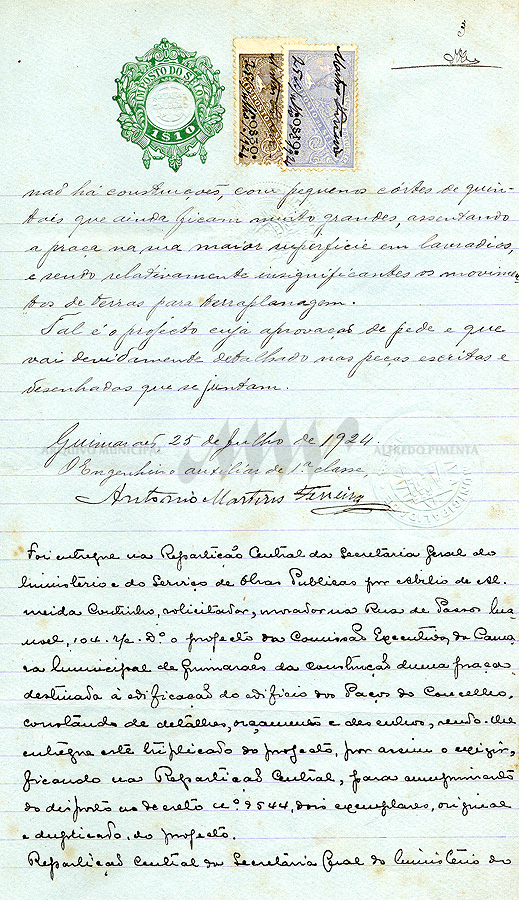 IMPOSTO DO SELO
1$10
3
não há construções, com pequenos córtes de quin-
táes que ainda ficam muito grandes, assentando
a praça na sua maior superficie em lavradios,
e sendo relativamente insignificantes os movimen
tos de terras para terraplanagem.
Tal é o projecto cuja aprovação se pede e que
vai devidamente detalhado nas peças escritas e
desenhadas que se juntam.
Guimarães, 25 de Julho de 1924.
ARQUIVO MUNICIPAL ALFREDO PIMENTA
O Engenheiro auxiliar de 1ª classe,
Antonio Martins Ferreira
Foi entregue na Repartição Central da Secretaria Geral do
Ministério e do Serviço de Obras Publicas por Abilio de Al-
meida Coutinho, solicitador, morador na Rua de Passos Ma
nuel, 104. r/c. Dº. o projecto da Comissão Executiva da Cama
ra Municipal de Guimarães da construcção duma praça
destinada á edificação do edificio dos Paços do Concelho,
constando de detalhes, orçamento e desenhos, sendo-lhe
entregue este triplicado do projecto, por assim o exigir,
ficando na Repartição Central, para cumprimento
do disposto no decreto nº 9544, dois exemplares, original
e duplicado, do projecto.
Repartição Central da Secretaria Geral do Ministério do